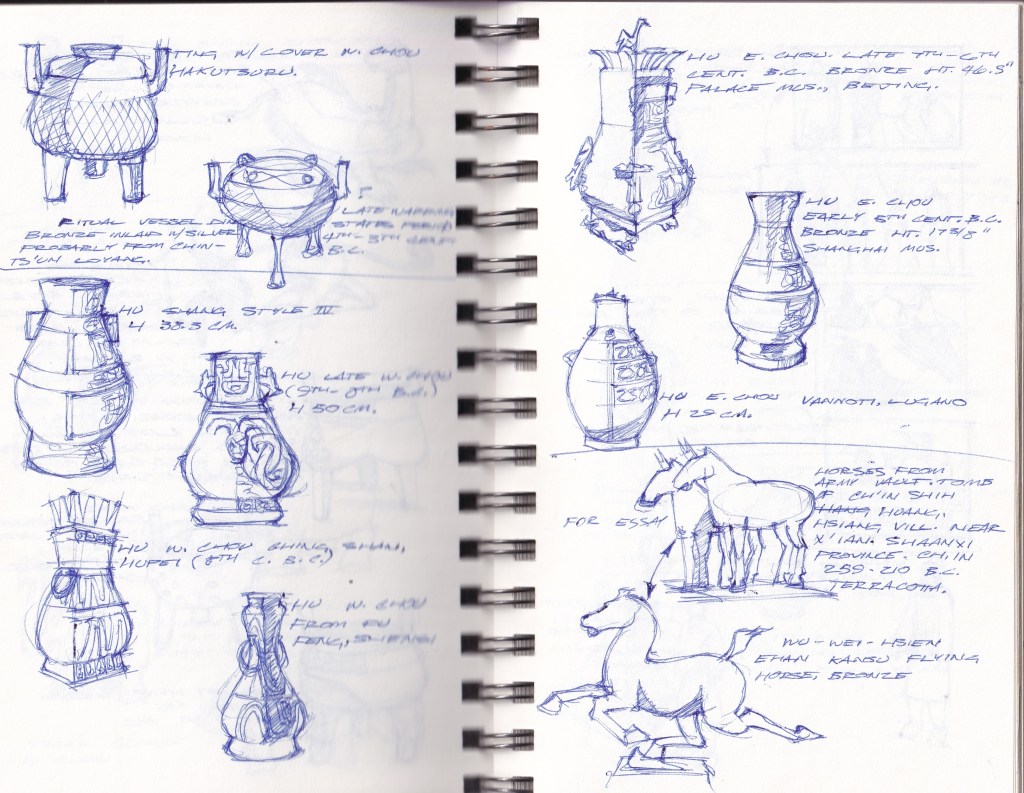 TING W/ COVER W. CHOU
HAKUTSURU.
RITUAL VESSEL
BRONZE INLAID W/SILVER
PROBABLY FROM CHIN-
TS'UN LOYANG.
LATE WARRING
STATES PERIOD
4TH - 3TH CENT.
B.C.
HU SHANG STYLE IV
H 38.3 CM.
HU LATE W. CHOU
(9TH - 8TH B.C.)
H 50 CM.
HU W. CHOU CHING SHAN,
HUPEI (8TH C. B.C.)
HU W. CHOU
FROM FU
FENG, SHENSI
HU E. CHOU. LATE 7TH - 6TH
CENT. B.C. BRONZE HT. 46.5"
PALACE MUS., BEIJING.
HU E. CHOU
EARLY 5TH CENT. B.C.
BRONZE HT. 17 5/8"
SHANGHAI MUS.
HU E. CHOU VANNOTTI, LUGANO
H 29 CM.
HORSES FROM
ARMY VAULT. TOMB
OF CH'IN SHIH
HUANG,
HSIANG VILL. NEAR
X'IAN. SHAANXI
PROVINCE. CH.IN
259-210 B.C.
TERRACOTTA.
FOR ESSAY
WU-WEI-HSIEN
EHAN KANSU FLYING
HORSE, BRONZE